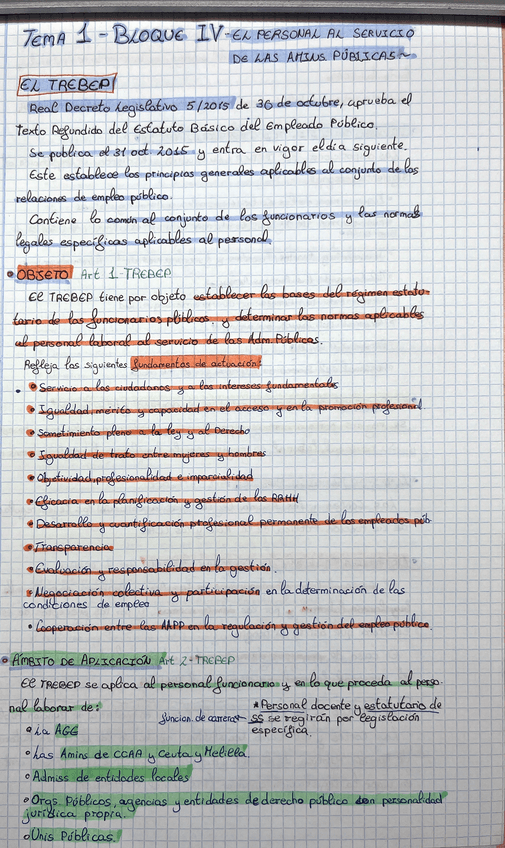 TEMA 1 - BLOQUE IV - EL PERSONAL AL SERVICIO
DE LAS AMINS PÚBLICAS
EL TREBEP
Real Decreto Legislativo 5/2015 de 30 de octubre, aprueba el
Texto Refundido del Estatuto Básico del Empleado Público.
Se publica el 31 oct. 2015 y entra en vigor el día siguiente.
Este establece los principios generales aplicables al conjunto de las
relaciones de empleo público.
Contiene lo común al conjunto de los funcionarios y las normas
legales específicas aplicables al personal.
• OBJETO Art 1-TREBEP
El TREBEP tiene por objeto establecer las bases del régimen estatu-
tario de los funcionarios públicos y determinar las normas aplicables
al personal laboral al servicio de las Adm. Públicas.
Refleja los siguientes fundamentos de actuación:
• Servicio a los ciudadanos y a los intereses fundamentales
• Igualdad, mérito y capacidad en el acceso y en la promoción profesional.
• Sometimiento pleno a la ley y al Derecho
• Igualdad de trato entre mujeres y hombres
• Objetividad, profesionalidad e imparcialidad
• Eficacia en la planificación y gestión de los RRHH
• Desarrollo y cuantificación profesional permanente de los empleados púb.
• Transparencia
• Evaluación y responsabilidad en la gestión.
• Negociación colectiva y participación en la determinación de las
condiciones de empleo
• Cooperación entre las AAPP en la regulación y gestión del empleo público.
• ÁMBITO DE APLICACIÓN Art 2-TREBEP
El TREBEP se aplica al personal funcionario y en lo que proceda al perso-
nal laborar de:
* Personal docente y estatutario de
funcion. de carrera SS se regirán por legislación
específica.
• La AGE
• Las Amins de CCAA y Ceuta y Melilla.
• Admiss de entidades locales
• Orgs. Públicos, agencias y entidades de derecho público con personalidad
jurídica propia.
• Unis Públicas.